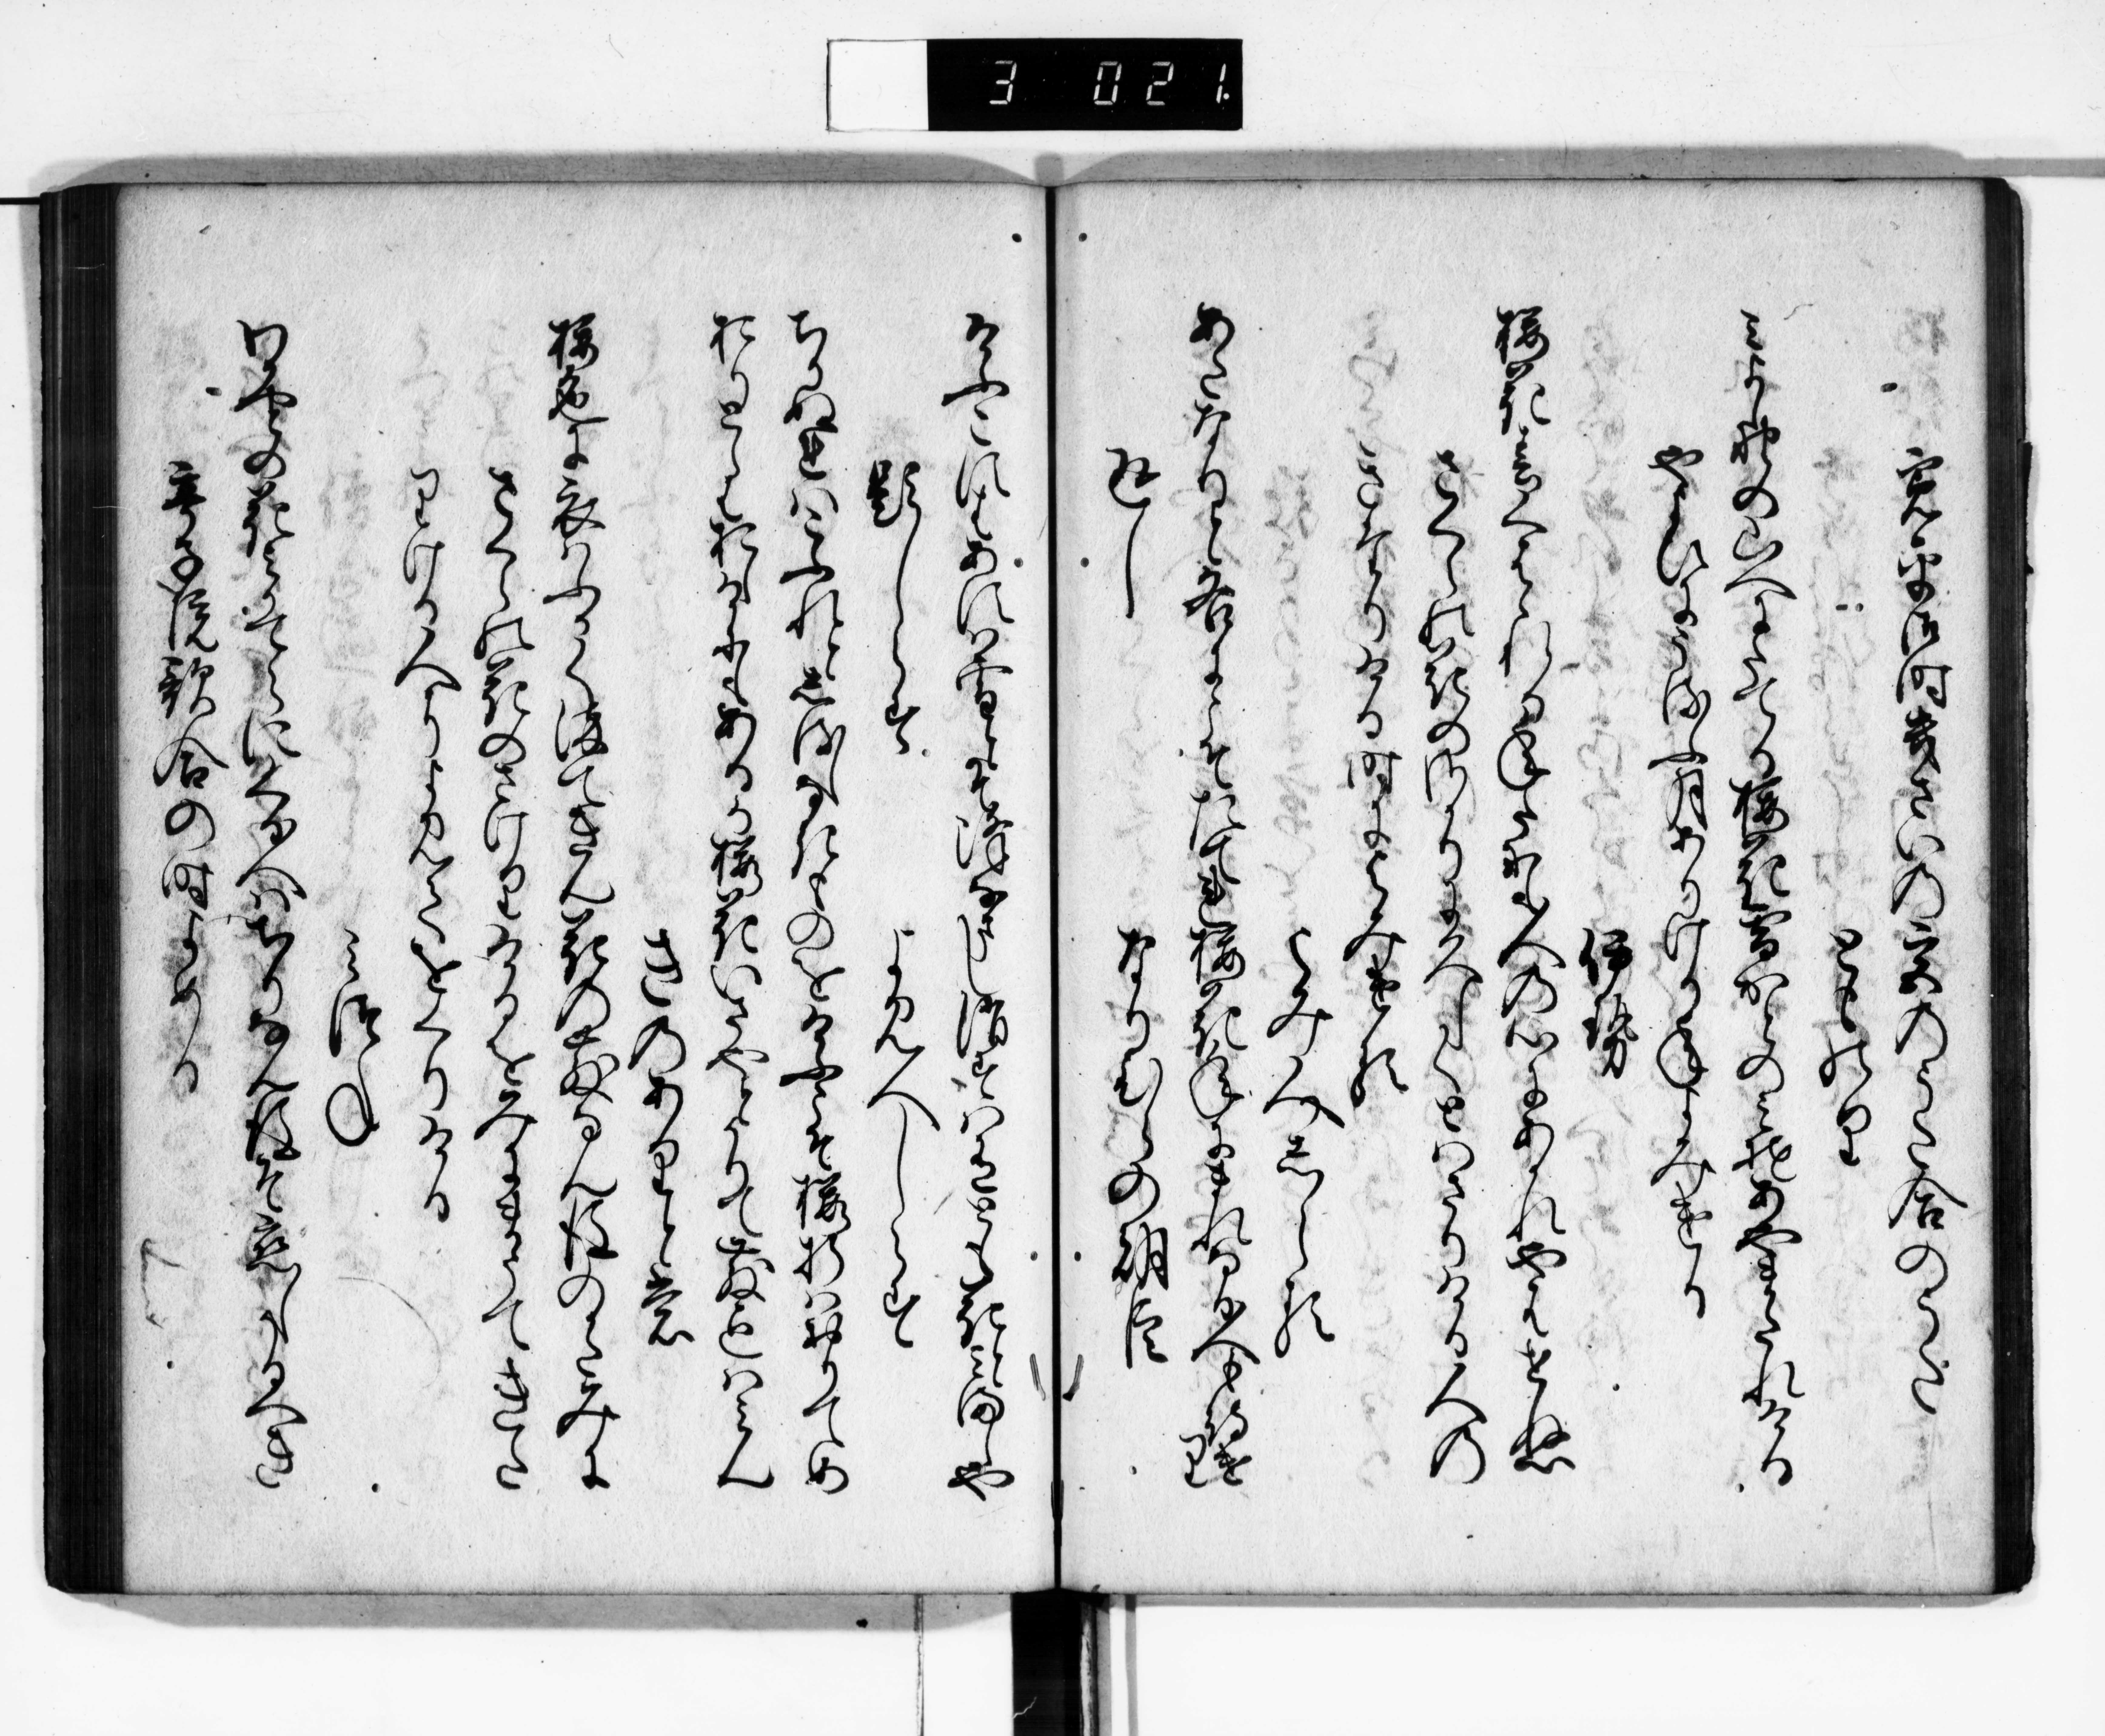 3 021
寛平御時きさいの宮のうた合のうた
とものり
みよし野の山へにさける桜花雪かとのみそあやまたれける
やよひにうるふ月ありける年よみける
伊勢
桜花春くはゝれる年たにも人の心にあかれやはせぬ
さくらの花のさかりに久しくとはさりける人の
きたりける時によみける
よみ人しらす
あたなりと名にこそたてれ桜花年にまれなる人も待けり
返し　なりひらの朝臣
けふこすはあすは雪とそ降なまし消すはありとも花とみましや
題しらす　よみ人しらす
ちりぬれはこふれとしるしなきものをけふこそ桜折はおりてめ
おりとらはおしけにもあるか桜花いさやとかりて散まてはみん
きのありとも
桜色に衣はふかく染てきん花の散なん後のかたみに
さくらの花のさけりけるをみにまうてきた
りける人によみてをくりける
みつね
わかやとの花みかてらにくる人はちりなん後そ恋しかるへき
亭子院歌合の時よめる